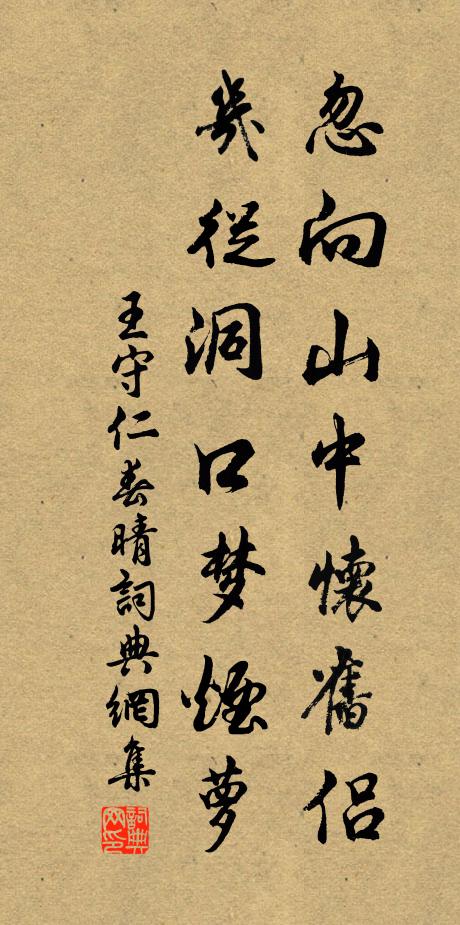 忽向山中懷舊侶
幾從洞口梦煙萝
王守仁春晴詞典網集
詞典网印